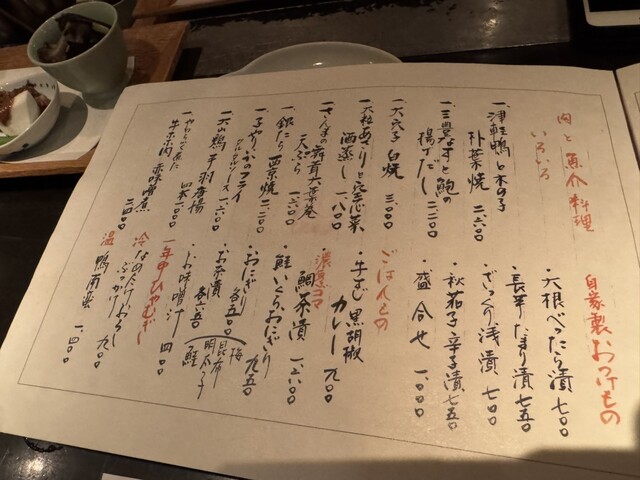 肉と魚介料理
いろいろ
一、津軽鴨と木の子
朴葉焼 二六〇〇
一、三豊なすと鮑の
揚げだし 二二〇〇
一、穴子白焼 三〇〇〇
酒蒸し 一八〇〇
一、さんまの舞茸
天ぷら 一六〇〇
一、銀だら西京焼 二二〇〇
一、子やりいかのフライ
一、大山鶏手羽唐揚
牛ホホ肉味噌煮
自家製おつけもの
・大根べったら漬 七〇〇
・長芋たまり漬 七五〇
・ざっくり浅漬 七〇〇
・秋茄子辛子漬 七五〇
・盛合せ 一、〇〇〇
ごはんもの
・牛すじ黒胡椒
カレー 九〇〇
濃厚ゴマ
・鯛茶漬 一、六〇〇
・鮭いくらおにぎり 九五〇
・おにぎり 各五〇〇
・お茶漬 各七五〇
梅
昆布
明太子
鮭
・お味噌汁 四〇〇
一年中ひやむぎ
冷 なめたけおろし
ぶっかけ 九〇〇
温 鴨南蛮 一、四〇〇